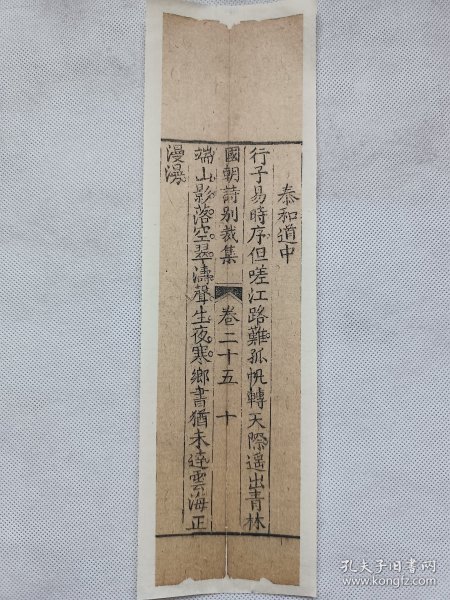 泰和道中
行子易時序但嗟江路難孤帆轉天際遥出青林
國朝詩别裁集 卷二十五 十
端山影落空翠濤聲生夜寒鄉書猶未達雲海正
漫漫
孔夫子旧书网
www.kongfz.com